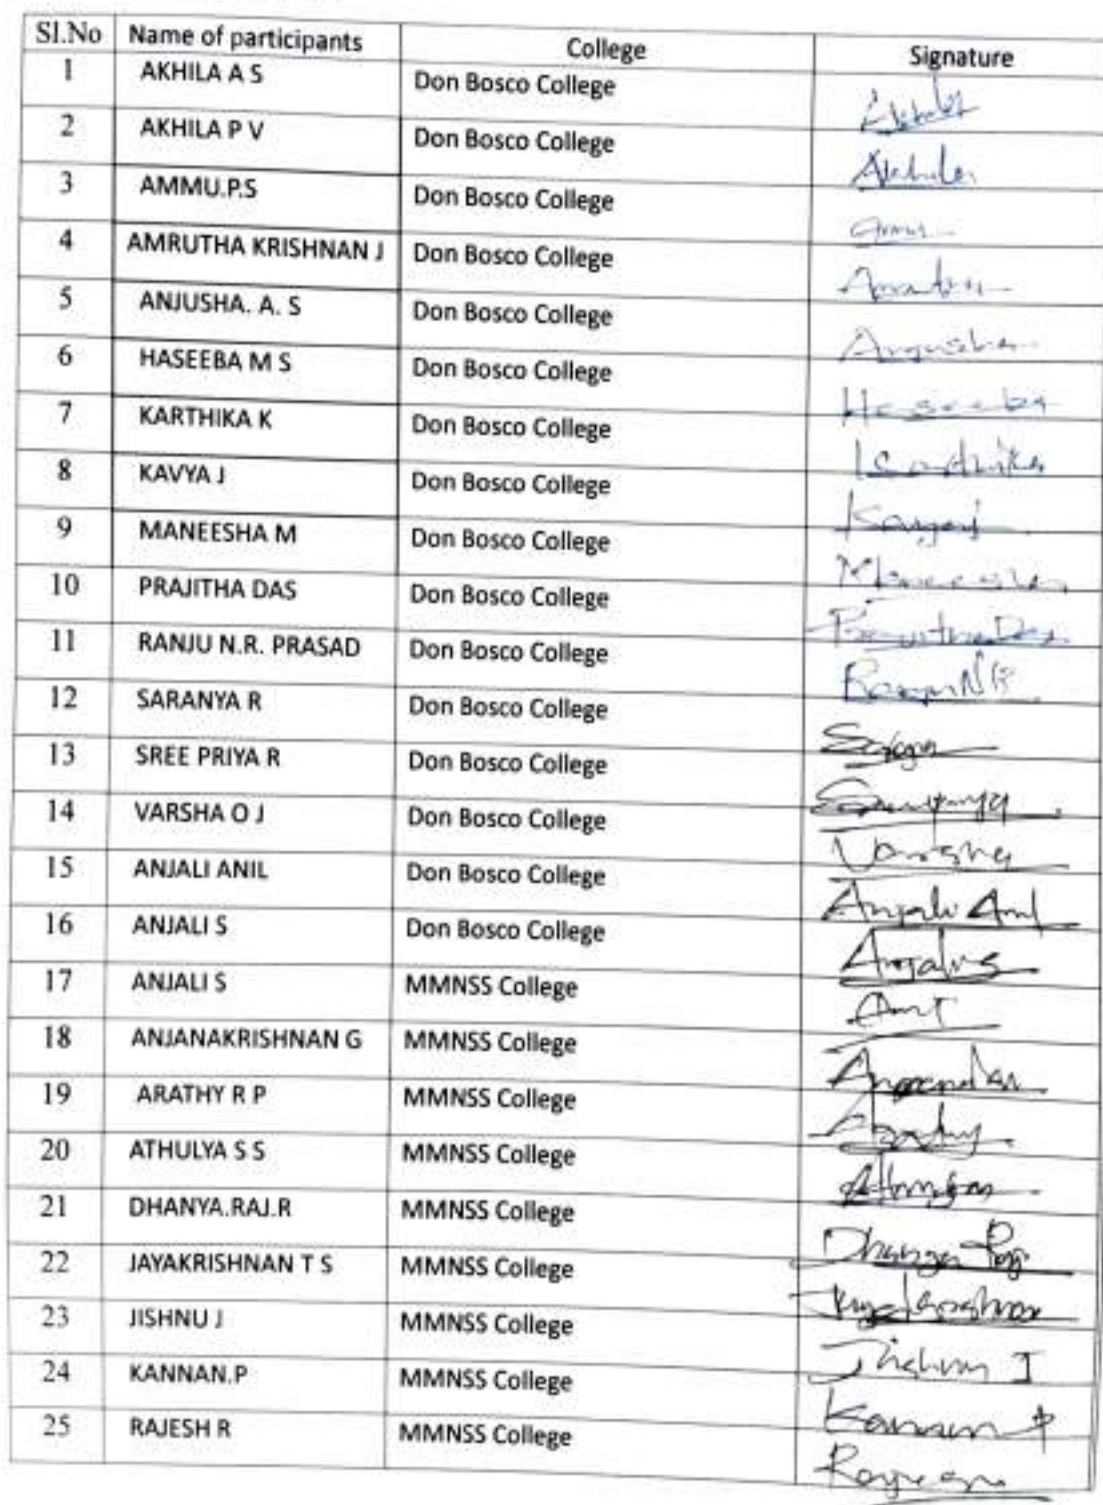 Sl.No Name of participants College Signature
1 AKHILA A S Don Bosco College Akhila
2 AKHILA P V Don Bosco College Akhila
3 AMMU.P.S Don Bosco College
4 AMRUTHA KRISHNAN J Don Bosco College
5 ANJUSHA. A. S Don Bosco College Anjusha
6 HASEEBA M S Don Bosco College Haseeba
7 KARTHIKA K Don Bosco College Karthika
8 KAVYA J Don Bosco College
9 MANEESHA M Don Bosco College Maneesha
10 PRAJITHA DAS Don Bosco College
11 RANJU N.R. PRASAD Don Bosco College
12 SARANYA R Don Bosco College
13 SREE PRIYA R Don Bosco College
14 VARSHA O J Don Bosco College Varsha
15 ANJALI ANIL Don Bosco College Anjali Anil
16 ANJALI S Don Bosco College Anjali S
17 ANJALI S MMNSS College
18 ANJANAKRISHNAN G MMNSS College
19 ARATHY R P MMNSS College
20 ATHULYA S S MMNSS College
21 DHANYA.RAJ.R MMNSS College Dhanya Raj
22 JAYAKRISHNAN T S MMNSS College
23 JISHNU J MMNSS College Jishnu J
24 KANNAN.P MMNSS College Kannan P
25 RAJESH R MMNSS College